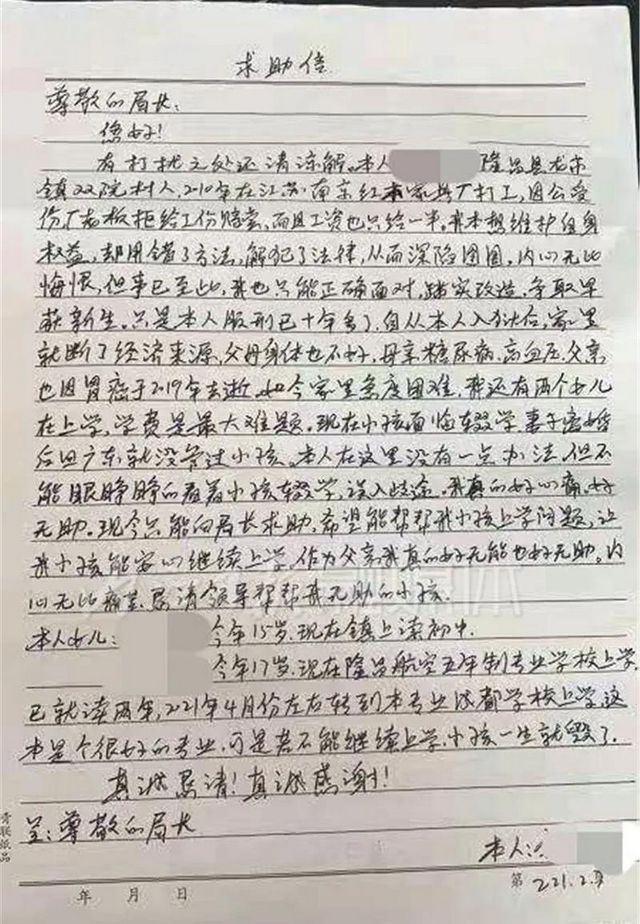 求助信
尊敬的局长:
您好!
有打扰之处还请谅解。本人 隆昌县龙市
镇双院村人,2010年在江苏南京红 家具厂打工,因公受
伤厂老板拒给工伤赔尝,而且工资也只给一半。我本想维护自身
权益,却用错了方法,触犯了法律,从而深陷囹圄。内心无比
悔恨,但事已至此,我也只能正确面对,踏实改造,争取早
获新生。只是本人服刑已十年多了,自从本人入狱后,家里
就断了经济来源,父母身体也不好,母亲糖尿病、高血压,父亲
也因胃癌于2019年去逝。如今家里急度困难,我还有两个女儿
在上学,学费是最大难题。现在小孩面临辍学,妻子离婚
后回广东就没管过小孩。本人在这里没有一点办法,但不
能眼睁睁的看着小孩辍学,误入歧途。我真的好心痛,好
无助。现今只能向局长求助,希望能帮帮我小孩上学问题,让
我小孩能安心继续上学。作为父亲我真的好无能也好无助。内
心无比痛苦,恳请领导帮帮我无助的小孩.
本人女儿: 今年15岁.现在镇上读初中.
今年17岁.现在隆昌航空五年制专业学校上学
已就读两年,2021年4月份左右转到本专业成都学校上学.这
本是个很好的专业,可是若不能继续上学,小孩一生就毁了.
真诚恳请!真诚感谢!
呈:尊敬的局长
本人:
青联纸品
年 月 日
第 221.2.